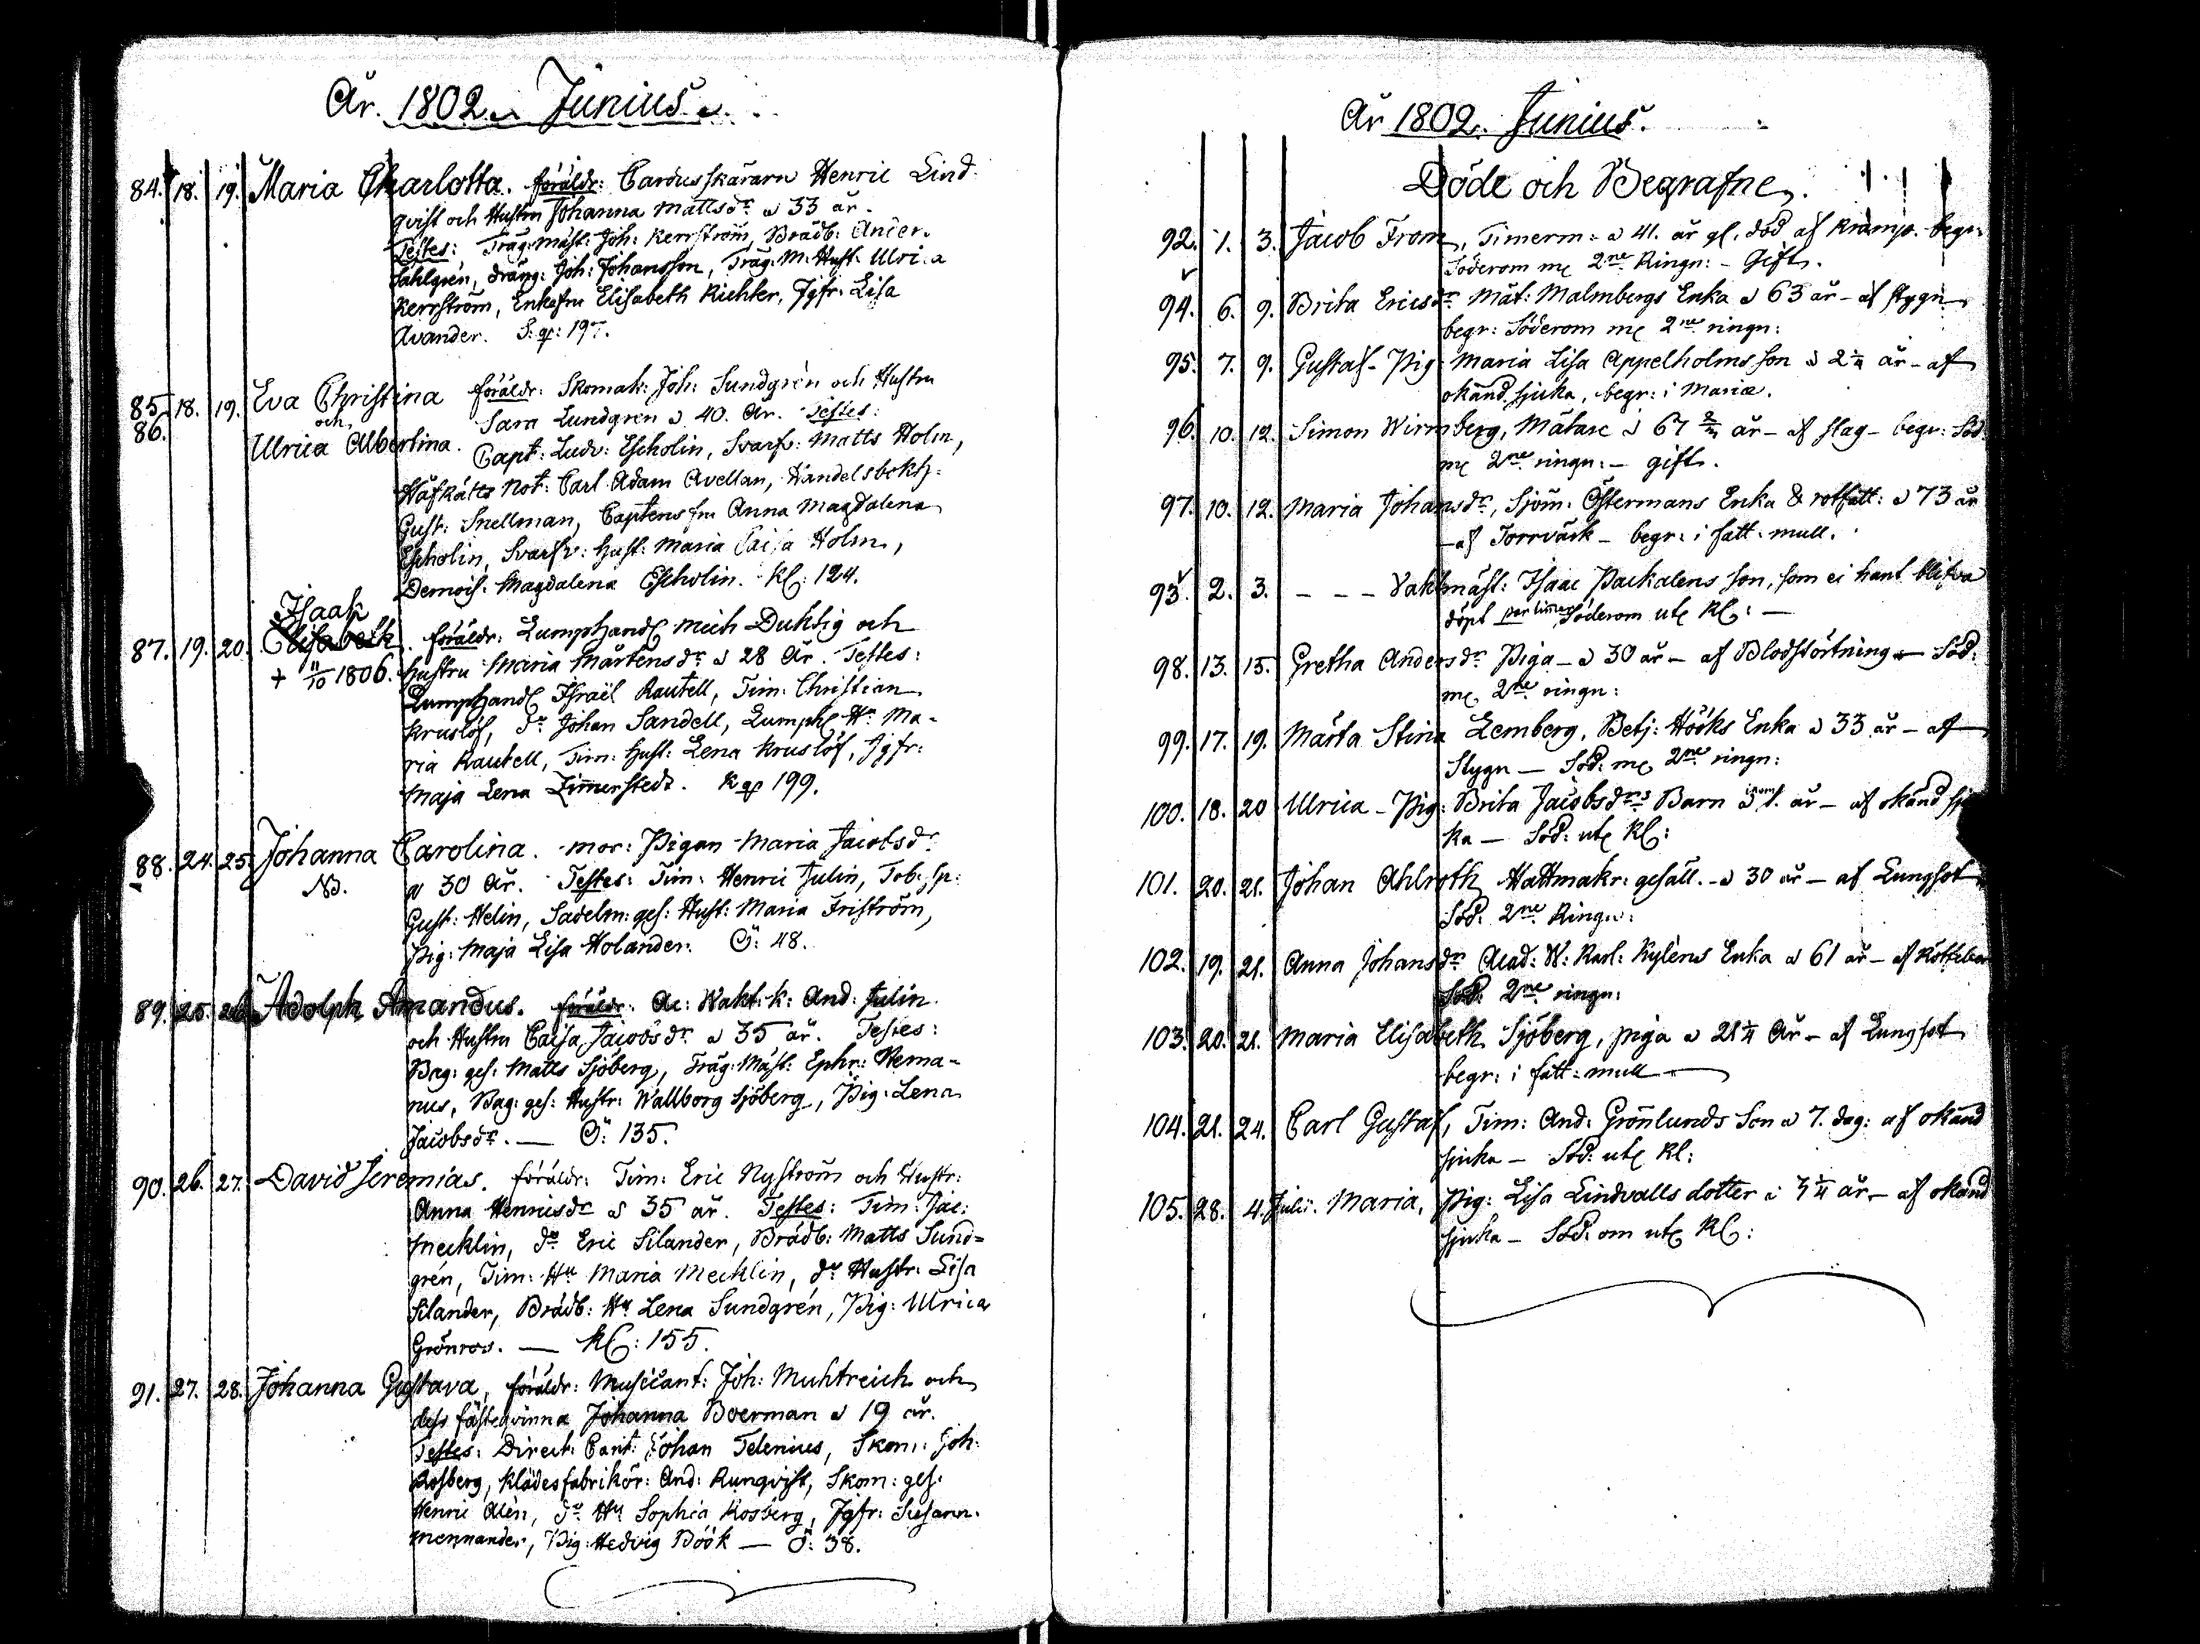 År. 1802. Junius.
84. 18. 19. Maria Charlotta. föräldr: Cardusskäraren Henric Lind-
qvist och Hustru Johanna Mattsdr a 33 år.
Testes: Träg: Mäst: Joh: Kerrström, Brädb: Ander.
Sahlgrén, dräng: Joh: Johansson, Träg: M: Hust: Ulrica
Kerrström, Enkefru Elisabeth Richter, Jgfr: Lisa
Avander. S: qv: 197.
85. 18. 19. Eva Christina föräldr: Skomak: Joh: Sundgrén och Hustru
86. och Sara Lundgren a 40. År. Testes:
Ulrica Albertina. Capt: Ludv: Escholin, Svarfv: Matts Holm,
Håfrätts Not: Carl Adam Avellan, Handelsbokh:
Gust: Snellman, Captens fru Anna Magdalena
Escholin, Svarfv: Hust: Maria Caisa Holm,
Demois: Magdalena Escholin. Kl: 124.
Isaak
87. 19. 20. Elisabeth. föräldr: Lumphandl Mich Duktig och
+ 11/10 1806. Hustru Maria Mårtensdr a 28 År. Testes:
Lumphandl Israël Rautell, Tim: Christian
Kruslöf, do Johan Sandell, Lumphl Hu Ma-
ria Rautell, Tim: Hust: Lena Kruslöf, Jgfr:
Maja Lena Zimmerstedt. K qv 199.
88. 24. 25. Johanna Carolina. mor: Pigan Maria Jacobsdr
NB. a 30 År. Testes: Tim: Henric Julin, Tob: sp:
Gust: Helin, Sadelm: ges: Hust: Maria Friström,
Pig: Maja Lisa Holander. Ö: 48.
89. 25. 26. Adolph Amandus. föräldr: Ac: Wakt: k: And: Julin
och Hustru Caisa Jacobsdr a 35 år. Testes:
Bag: ges: Matts Sjöberg, Träg: Mäst: Ephr: Nema-
nus, Bag: ges: Hustr: Wallborg Sjöberg, Pig: Lena
Jacobsdr. — Ö: 135.
90. 26. 27. David Jeremias. föräldr: Tim: Eric Nyström och Hustr:
Anna Henricsdr a 35 år. Testes: Tim: Jac:
Mecklin, do Eric Silander, Brädb: Matts Sund-
grén, Tim: Hu Maria Mecklin, do Hustr: Lisa
Silander, Brädb: Hu Lena Sundgrén, Pig: Ulrica
Grönroos. — Kl: 155.
91. 27. 28. Johanna Gustava, föräldr: Musicant: Joh: Muhtreich och
dess fästeqvinna Johanna Boerman a 19 år.
Testes: Direct: Cant: Johan Telenius, Skom: Joh:
Rosberg, Klädesfabrikör: And: Runqvist, Skom: ges:
Henric Alén, do Hu Sophia Rosberg, Jgfr: Susann:
Mennander, Pig: Hedvig Böök — Ö: 38.
År 1802. Junius.
Döde och Begrafne.
92. 1. 3. Jacob From, Timerm: a 41. år gl. död af kramp. begr:
Söderom me 2ne Ringn: – Gift.
94. 6. 9. Brita Ericsdr Mät: Malmbergs Enka a 63 år – af stygn
begr: Söderom me 2ne ringn:
95. 7. 9. Gustaf – Pig Maria Lisa Appelholms son a 2 1/4 år – af
okänd sjuka, begr: i Mariæ.
96. 10. 12. Simon Wirmberg, Mätare a 67 år – af slag – begr: Söd
me 2ne ringn: – gift.
97. 10. 12. Maria Johansdr, Sjöm: Östermans Enka & rotfatt: a 73 år
– af Torrvärk – begr: i fatt: mull.
93. 2. 3. – – – Vaktmäst: Isaac Packalens son, som ei hant blifva
döpt Söderom ute Kl: —
98. 13. 15. Gretha Andersdr Piga – a 30 år – af Blodstörtning – Söd:
me 2ne ringn:
99. 17. 19. Märta Stina Lemberg, Betj: Hööks Enka a 33 år – af
Stygn — Söd: me 2ne ringn:
100. 18. 20 Ulrica – Pig: Brita Jacobsdrs Barn inom 1. år – af okänd sju
ka — Söd: ute Kl:
101. 20. 21. Johan Ahlroth Hattmakr: gesäll. – a 30 år — af Lungsot
Söd. 2ne Ringn:
102. 19. 21. Anna Johansdr Acad: W: Karl: Kyléns Enka a 61 år – af
Söd: 2ne ringn:
103. 20. 21. Maria Elisabeth Sjöberg, piga a 21 1/4 År – af Lungsot
begr: i fatt: mull —
104. 21. 24. Carl Gustaf, Tim: And: Grönlunds Son a 7. dag: af okänd
sjuka — Söd: ute Kl:
105. 28. 4. Julii. Maria, Pig: Lisa Lindvalls dotter a 3 1/4 år – af okänd
sjuka — Söd. om ute Kl: